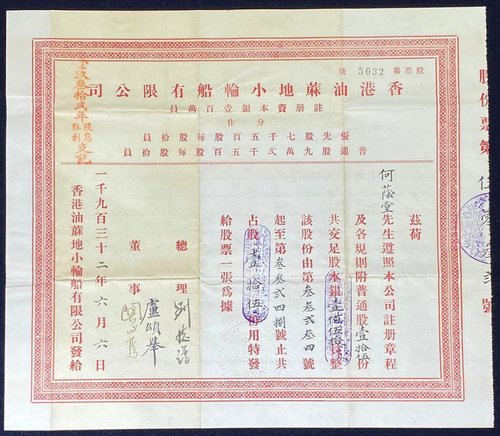 股票第 5032 號
香港油蔴地小輪船有限公司
註冊資本銀壹百萬員
分作
優先股七千五百股每股拾員
普通股九萬弍千五百股每股拾員
茲荷
何蔭堂先生遵照本公司註冊章程
及各規則附普通股壹十五份
共交足股本銀壹佰伍拾員整
該股份由第叁叁弍叁四號
起至第叁叁弍四捌號止共
占股壹拾伍份用特發
給股票一張為據
總理
董事 盧頌舉
一千九百三十二年六月六日
香港油蔴地小輪船有限公司發給
壹玖叁拾弍年股息紅利支訖
股份票第伍
號